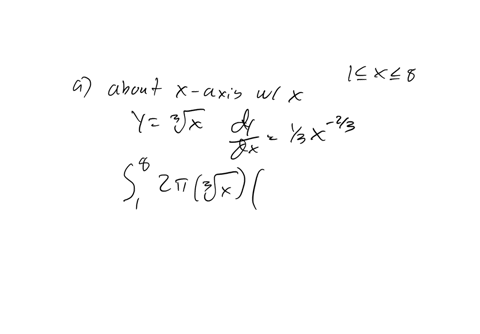 1 ≤ x ≤ 8
a) about x-axis w/ x
y = ∛x dy/dx = 1/3 x^(-2/3)
∫₁⁸ 2π(∛x)(